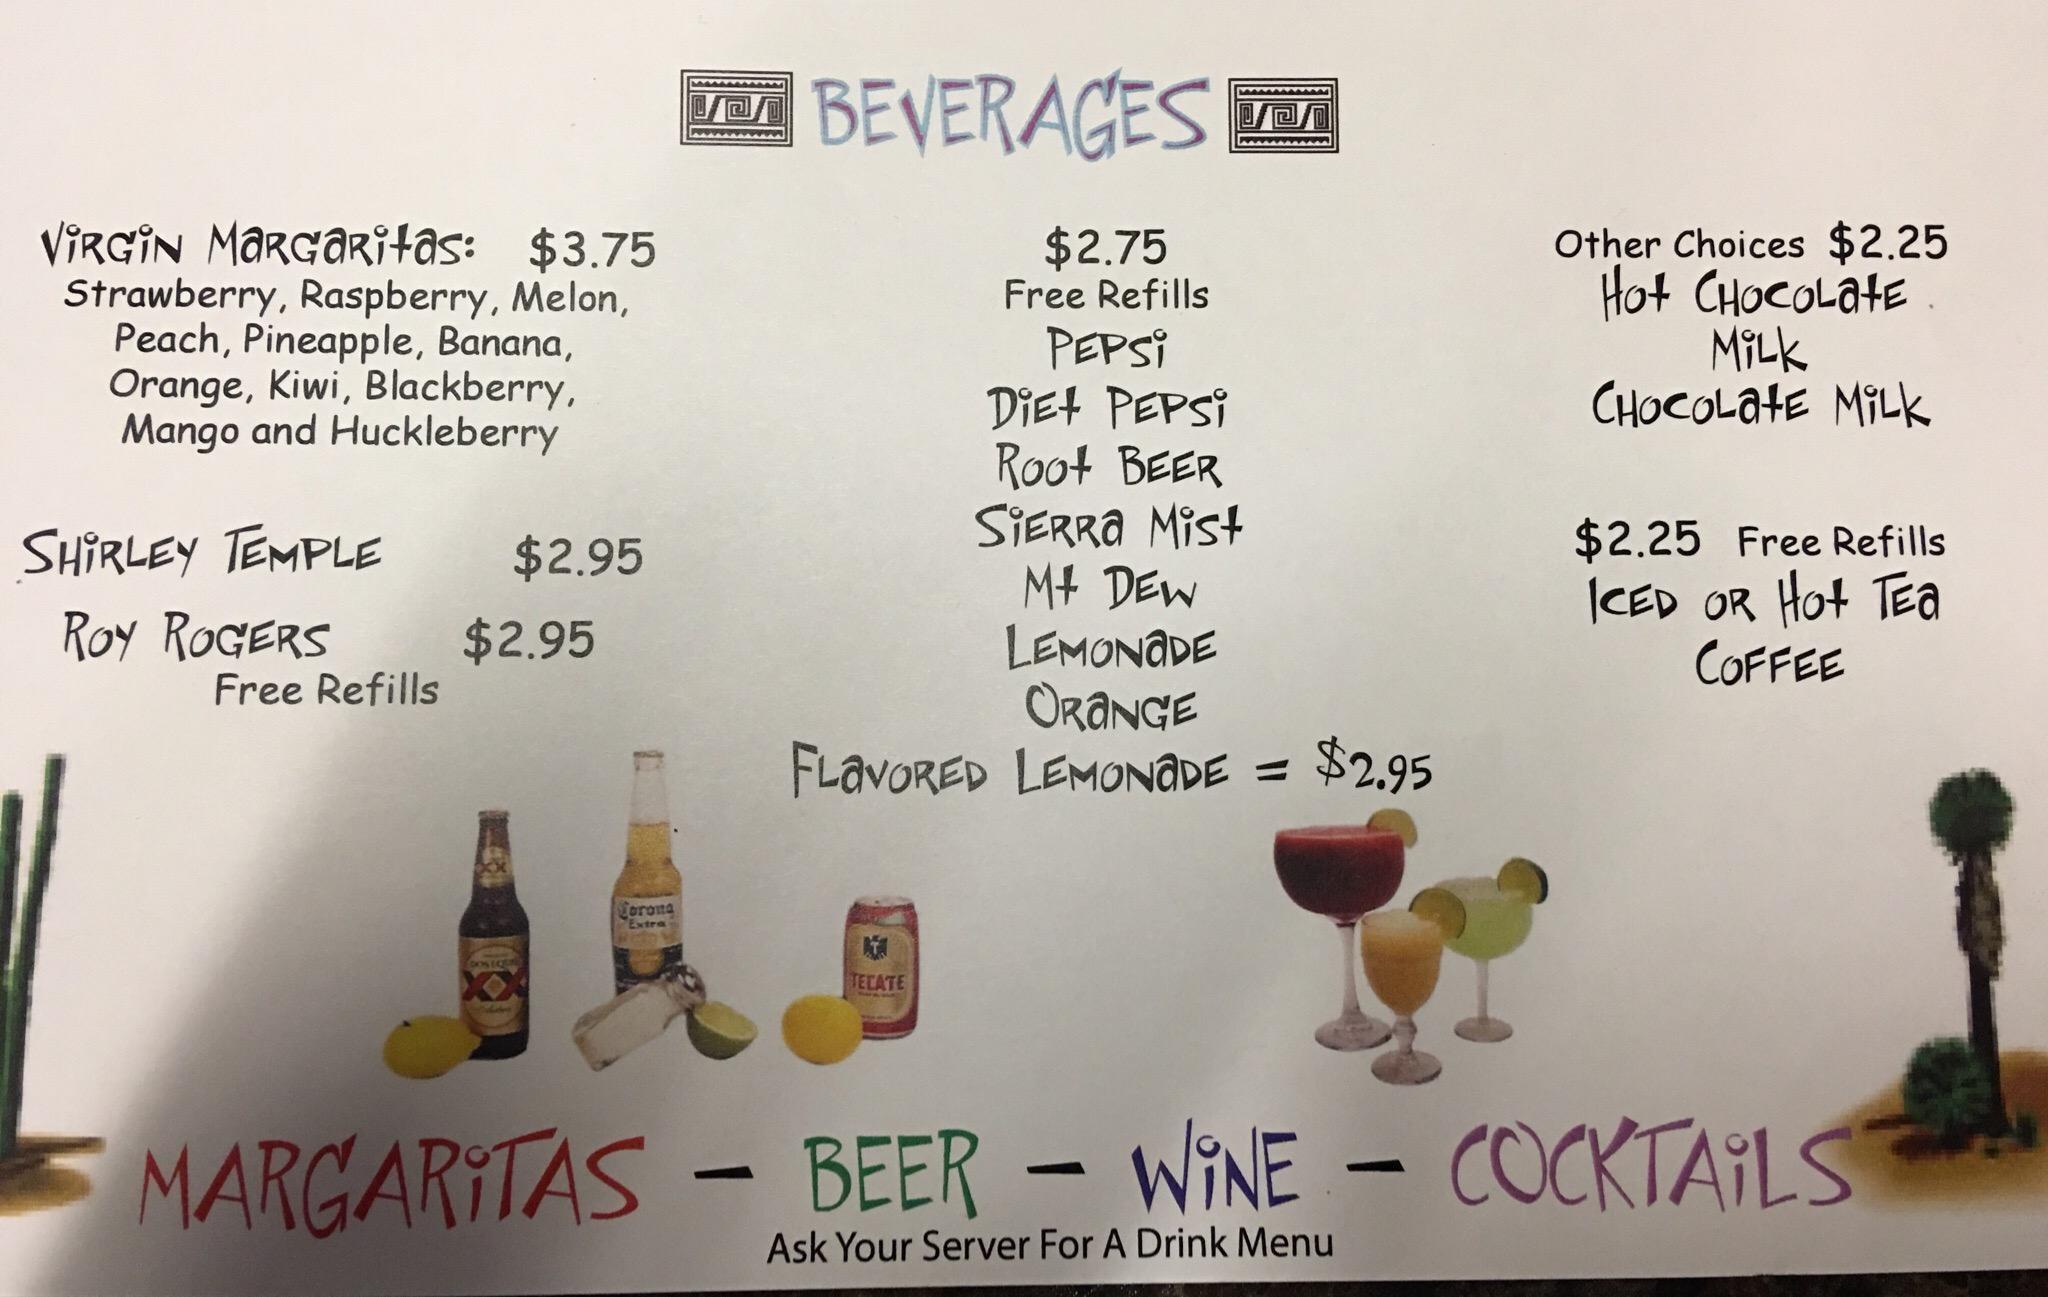 BEVERAGES
Virgin Margaritas: $3.75
Strawberry, Raspberry, Melon,
Peach, Pineapple, Banana,
Orange, Kiwi, Blackberry,
Mango and Huckleberry
Shirley Temple $2.95
Roy Rogers $2.95
Free Refills
$2.75
Free Refills
Pepsi
Diet Pepsi
Root Beer
Sierra Mist
Mt Dew
Lemonade
Orange
Flavored Lemonade = $2.95
Other Choices $2.25
Hot Chocolate
Milk
Chocolate Milk
$2.25 Free Refills
Iced or Hot Tea
Coffee
XX
XX
Corona
Extra
TECATE
MARGARITAS – BEER – WINE – COCKTAILS
Ask Your Server For A Drink Menu